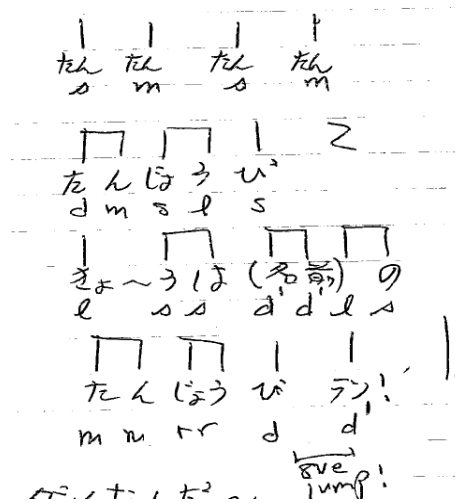 たん たん たん たん
s m s m
たんじょうび Z
d m s l s
きょ〜うは (名前) の
l s s d' d' l s
たんじょうび ラン!
m m r r d d'
8ve jump!